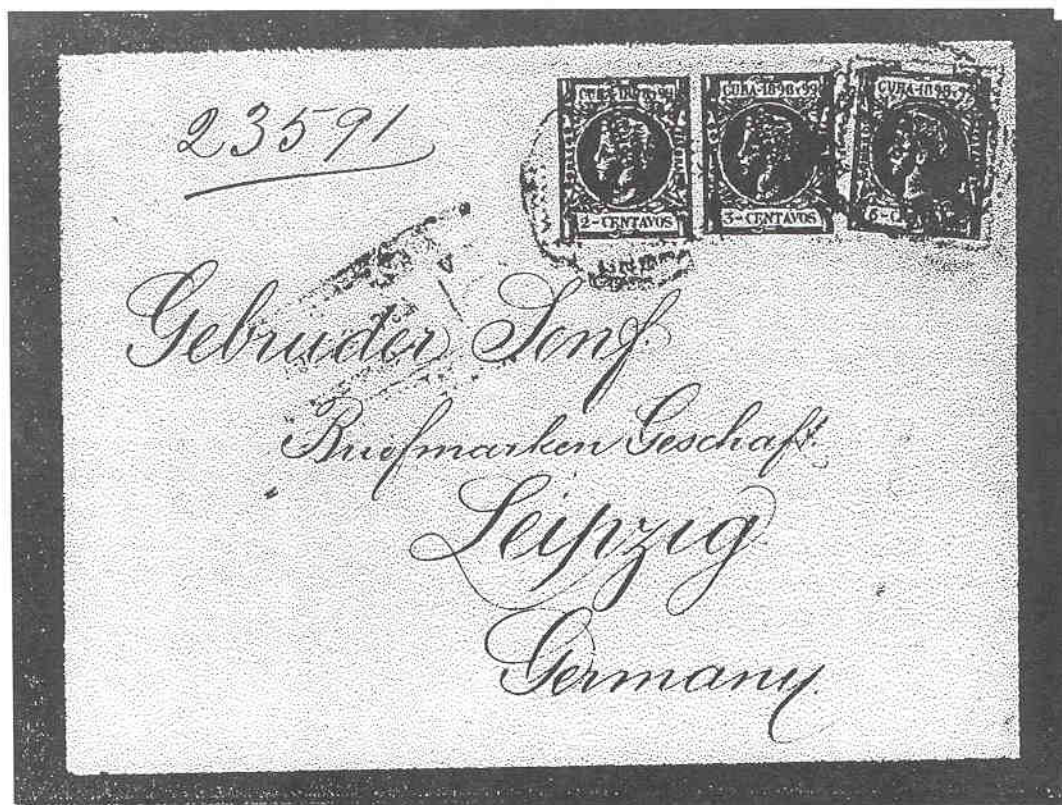 23591
CUBA-1898 y 99
2-CENTAVOS
CUBA-1898 y 99
3-CENTAVOS
CUBA-1898 y 99
6-
Gebruder Senf.
Briefmarken Geschaft.
Leipzig
Germany.